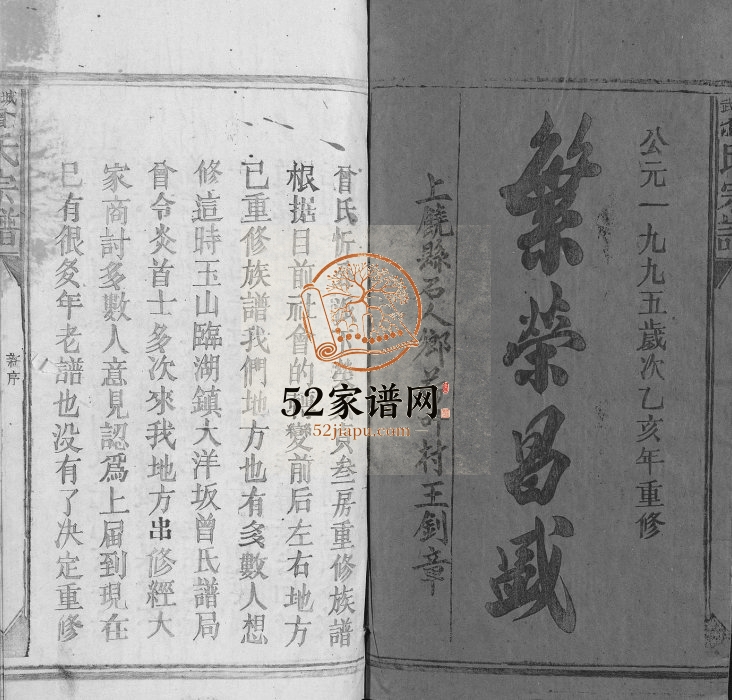 公元一九九五歲次乙亥年重修
繁榮昌盛
上饒縣石人鄉村王釗章
曾氏忻叁房重修族譜
根据目前社會的變前后左右地方
已重修族譜我們地方也有多數人想
修這時玉山臨湖鎮大洋坂曾氏譜局
曾令炎首士多次來我地方出修經大
家商討多數人意見認爲上屆到現在
已有很多年老譜也没有了决定重修
新序
氏宗譜
武
氏宗譜
城
52家谱网
52jiapu.com